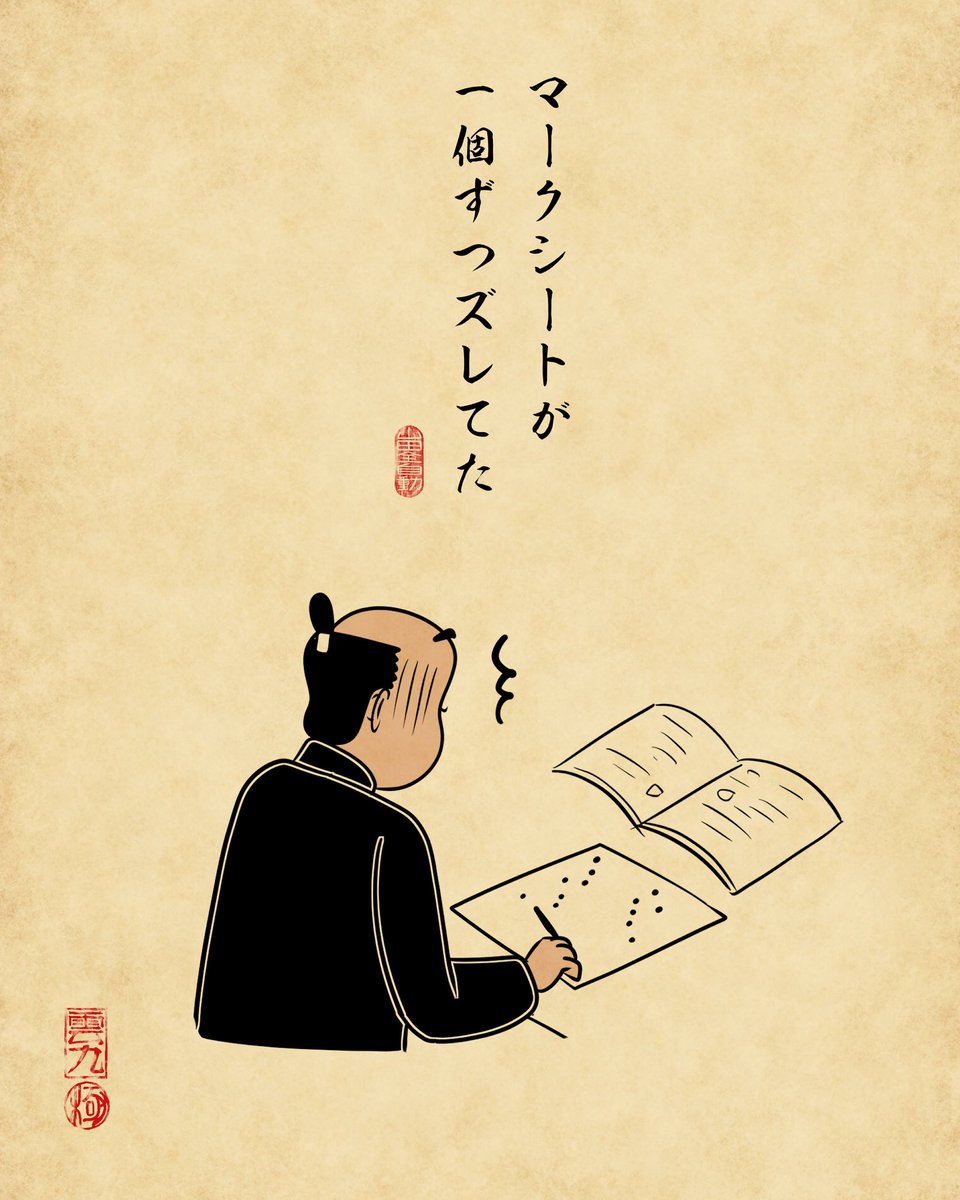 マークシートが
一個ずつズレてた
雲九
極